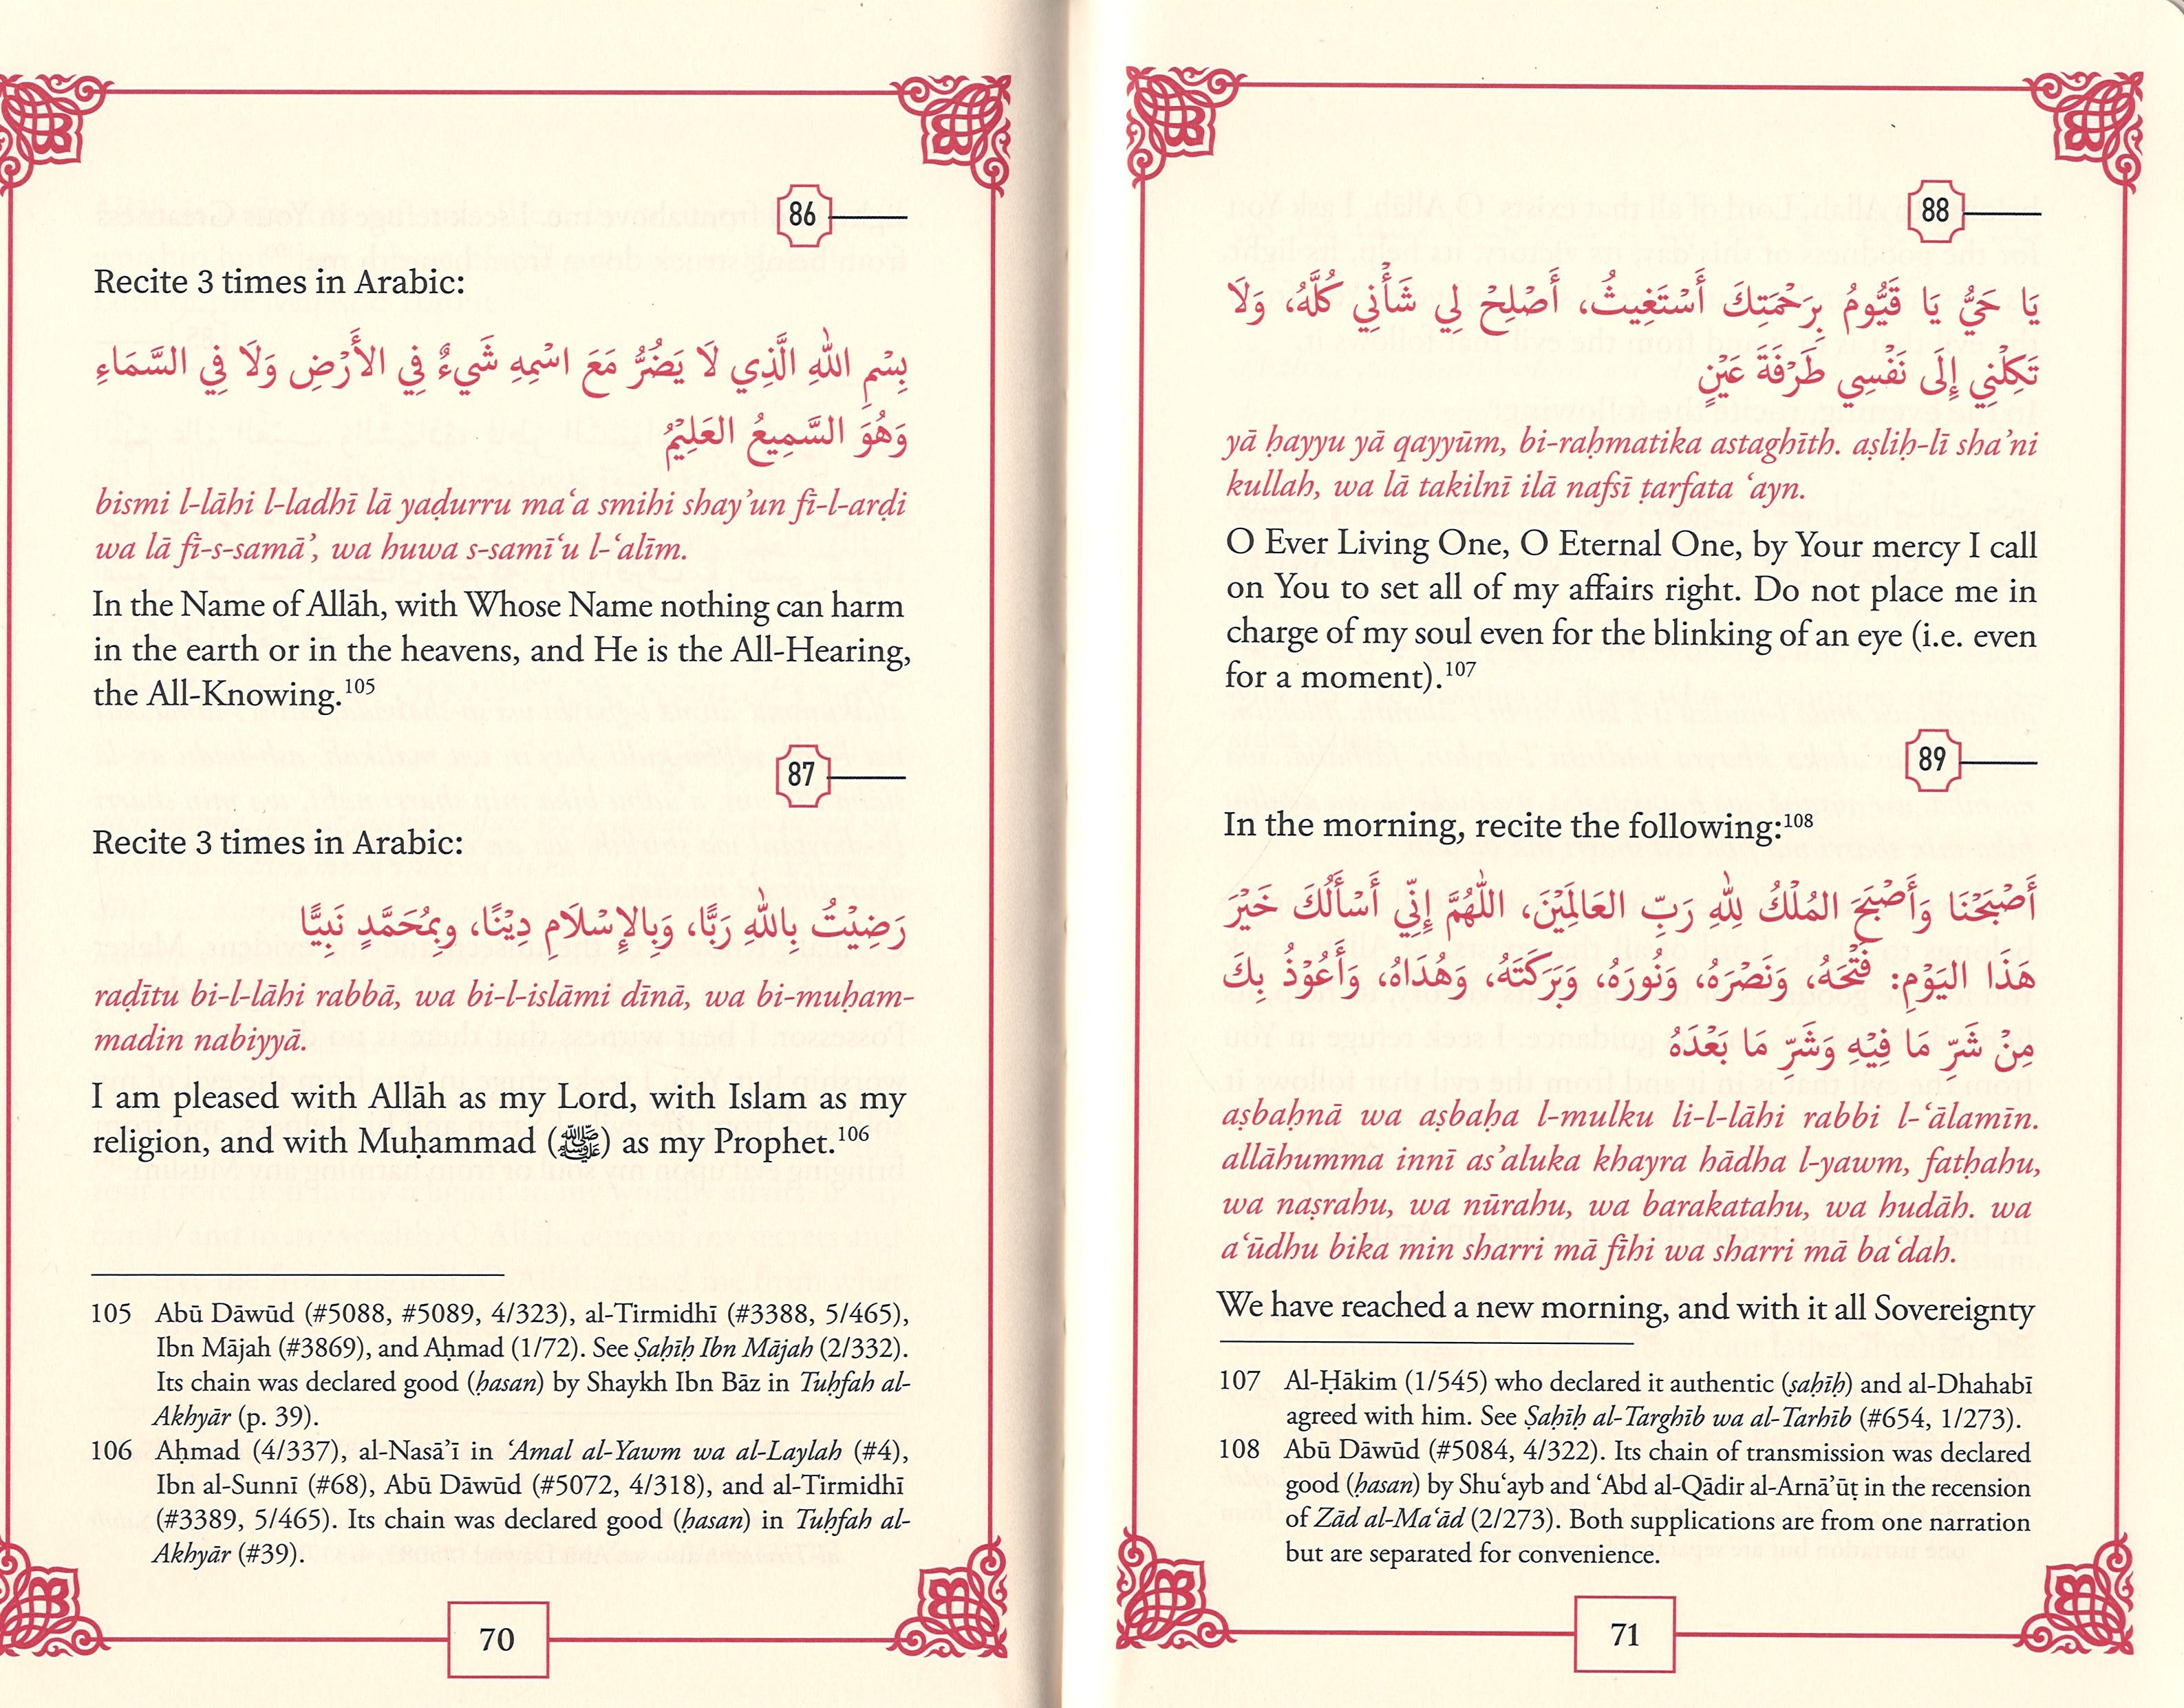 86
Recite 3 times in Arabic:
بِسْمِ اللهِ الَّذِي لَا يَضُرُّ مَعَ اسْمِهِ شَيءٌ فِي الأَرْضِ وَلَا فِي السَّمَاءِ
وَهُوَ السَّمِيعُ العَلِيْمُ
bismi l-lāhi l-ladhī lā yaḍurru ma‘a smihi shay’un fī-l-arḍi
wa lā fī-s-samā’, wa huwa s-samī‘u l-‘alīm.
In the Name of Allāh, with Whose Name nothing can harm
in the earth or in the heavens, and He is the All-Hearing,
the All-Knowing.105
87
Recite 3 times in Arabic:
رَضِيْتُ بِاللهِ رَبًّا، وَبِالإِسْلَامِ دِيْنًا، وبِمُحَمَّدٍ نَبِيًّا
raḍītu bi-l-lāhi rabbā, wa bi-l-islāmi dīnā, wa bi-muḥam-
madin nabiyyā.
I am pleased with Allāh as my Lord, with Islam as my
religion, and with Muḥammad (ﷺ) as my Prophet.106
105 Abū Dāwūd (#5088, #5089, 4/323), al-Tirmidhī (#3388, 5/465),
Ibn Mājah (#3869), and Aḥmad (1/72). See Ṣaḥīḥ Ibn Mājah (2/332).
Its chain was declared good (ḥasan) by Shaykh Ibn Bāz in Tuḥfah al-
Akhyār (p. 39).
106 Aḥmad (4/337), al-Nasā’ī in ‘Amal al-Yawm wa al-Laylah (#4),
Ibn al-Sunnī (#68), Abū Dāwūd (#5072, 4/318), and al-Tirmidhī
(#3389, 5/465). Its chain was declared good (ḥasan) in Tuḥfah al-
Akhyār (#39).
70
88
يَا حَيُّ يَا قَيُّومُ بِرَحْمَتِكَ أَسْتَغِيثُ، أَصْلِحْ لِي شَأْنِي كُلَّهُ، وَلَا
تَكِلْنِي إِلَى نَفْسِي طَرْفَةَ عَيْنٍ
yā ḥayyu yā qayyūm, bi-raḥmatika astaghīth. aṣliḥ-lī sha’ni
kullah, wa lā takilnī ilā nafsī ṭarfata ‘ayn.
O Ever Living One, O Eternal One, by Your mercy I call
on You to set all of my affairs right. Do not place me in
charge of my soul even for the blinking of an eye (i.e. even
for a moment).107
89
In the morning, recite the following:108
أَصْبَحْنَا وَأَصْبَحَ المُلْكُ لِلهِ رَبِّ العَالَمِيْنَ، اللَّهُمَّ إِنِّي أَسْأَلُكَ خَيْرَ
هَذَا اليَوْمِ: فَتْحَهُ، وَنَصْرَهُ، وَنُورَهُ، وَبَرَكَتَهُ، وَهُدَاهُ، وَأَعُوْذُ بِكَ
مِنْ شَرِّ مَا فِيْهِ وَشَرِّ مَا بَعْدَهُ
aṣbaḥnā wa aṣbaḥa l-mulku li-l-lāhi rabbi l-‘ālamīn.
allāhumma innī as’aluka khayra hādha l-yawm, fatḥahu,
wa naṣrahu, wa nūrahu, wa barakatahu, wa hudāh. wa
a‘ūdhu bika min sharri mā fīhi wa sharri mā ba‘dah.
We have reached a new morning, and with it all Sovereignty
107 Al-Ḥākim (1/545) who declared it authentic (ṣaḥīḥ) and al-Dhahabī
agreed with him. See Ṣaḥīḥ al-Targhīb wa al-Tarhīb (#654, 1/273).
108 Abū Dāwūd (#5084, 4/322). Its chain of transmission was declared
good (ḥasan) by Shu‘ayb and ‘Abd al-Qādir al-Arnā’ūṭ in the recension
of Zād al-Ma‘ād (2/273). Both supplications are from one narration
but are separated for convenience.
71